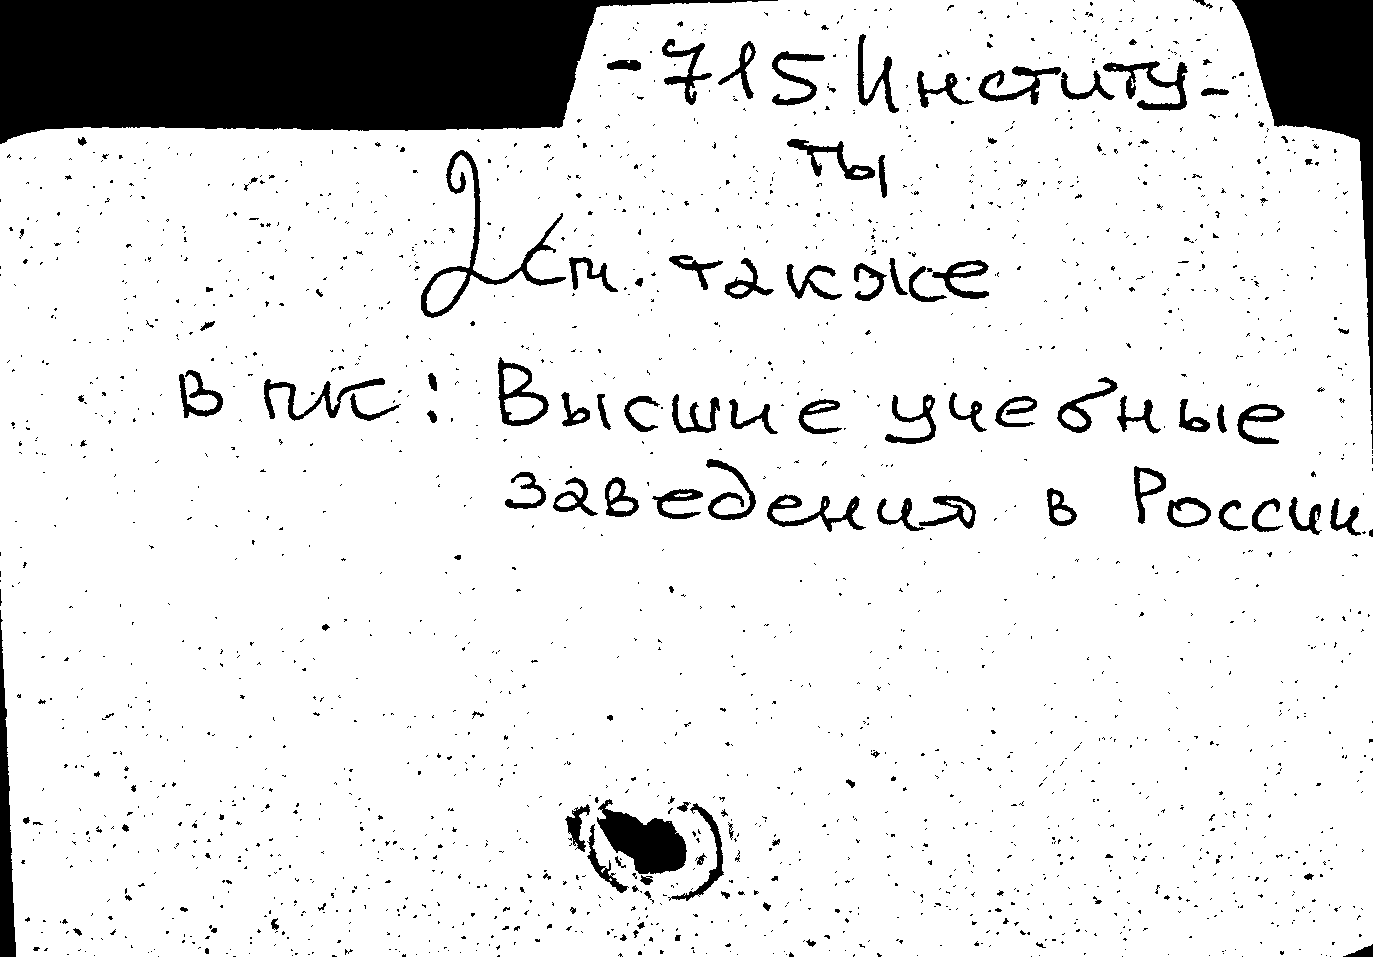 -715 Институ-
ты
См. также
в ПК: Высшие учебные
заведения в России.